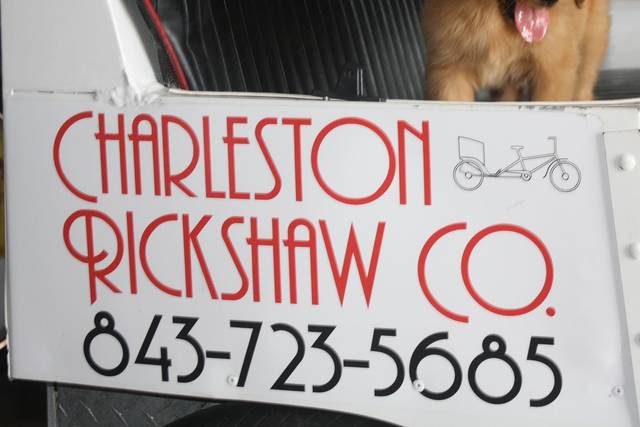 CHARLESTON
RICKSHAW CO.
843-723-5685